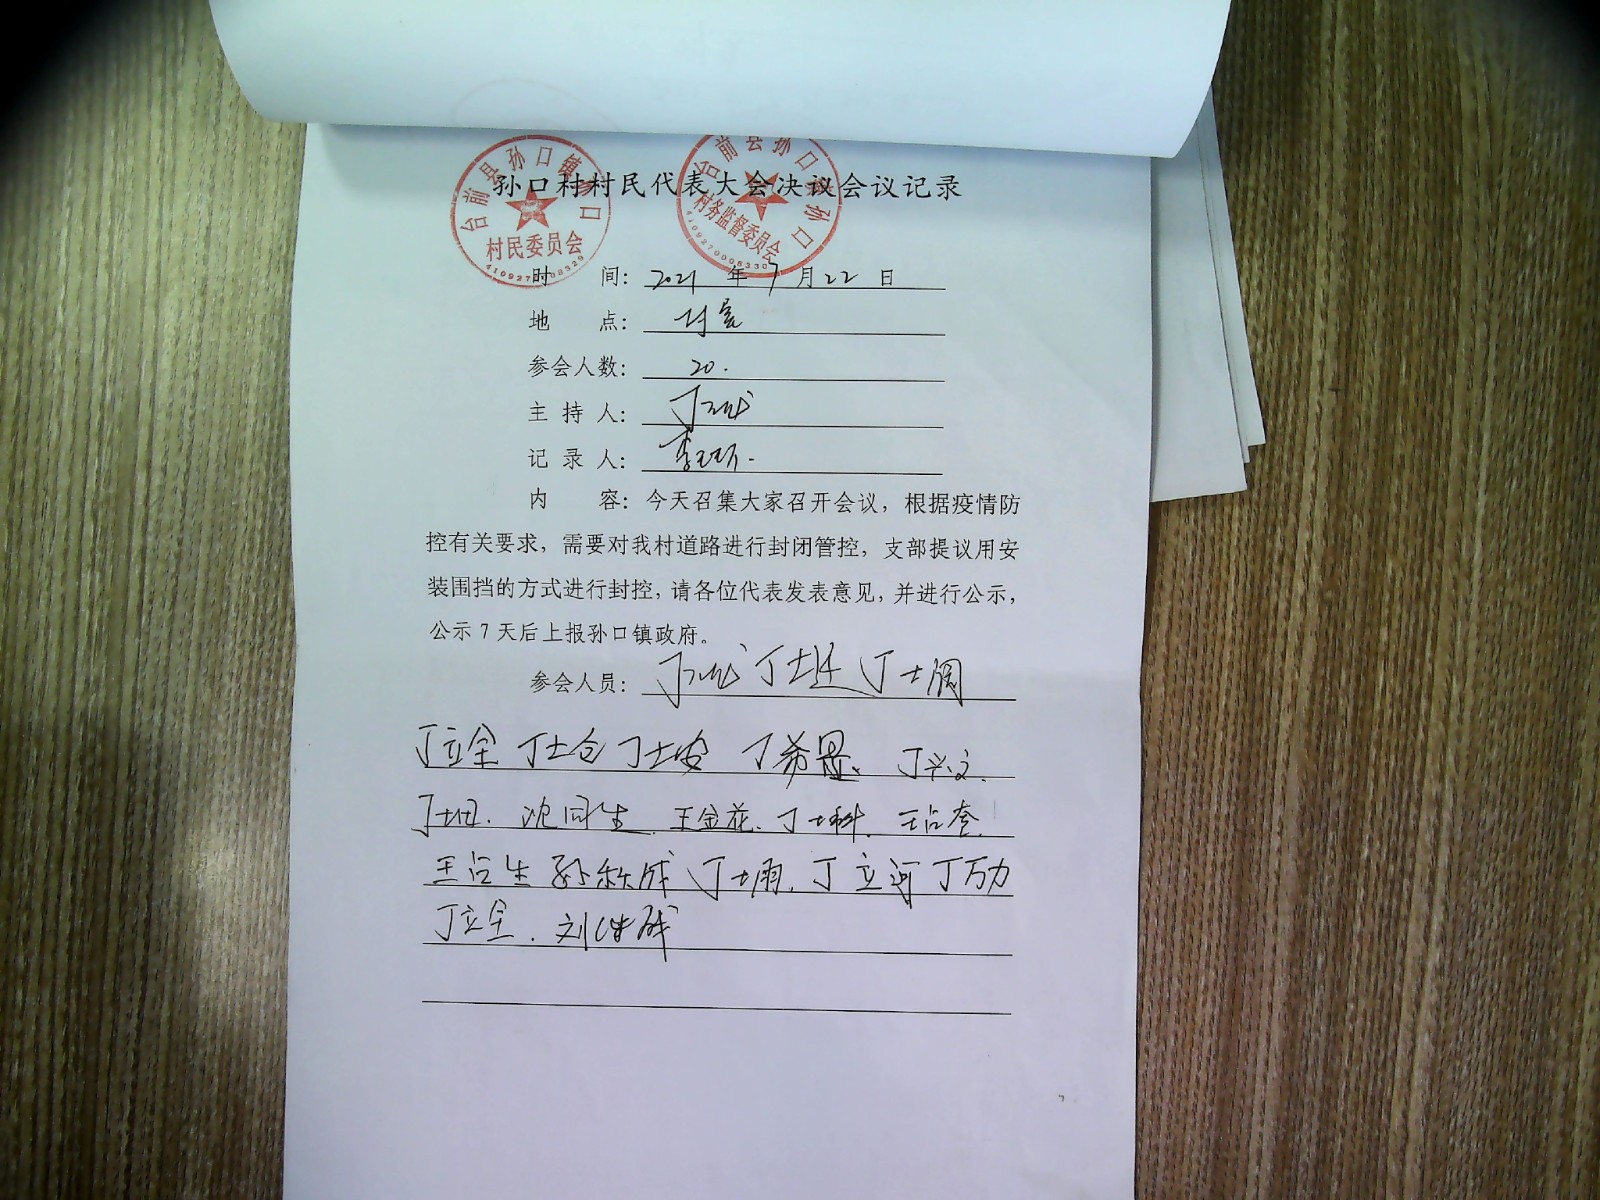 孙口村村民代表大会决议会议记录
台前县孙口镇孙口
村民委员会
4109270008329
台前县孙口镇孙口
村务监督委员会
4109270008330
时 间: 2021 年 7 月 22 日
地 点: 村室
参会人数: 20.
主 持 人:
记 录 人:
内 容: 今天召集大家召开会议，根据疫情防
控有关要求，需要对我村道路进行封闭管控，支部提议用安
装围挡的方式进行封控，请各位代表发表意见，并进行公示，
公示 7 天后上报孙口镇政府。
参会人员:
丁立全 丁士仓 丁士安 丁希恩、丁兴文.
沈同生. 王金花. 丁士科. 王占奎.
王占生 孙秋成 丁士雨. 丁立河 丁万力
丁立全. 刘继成